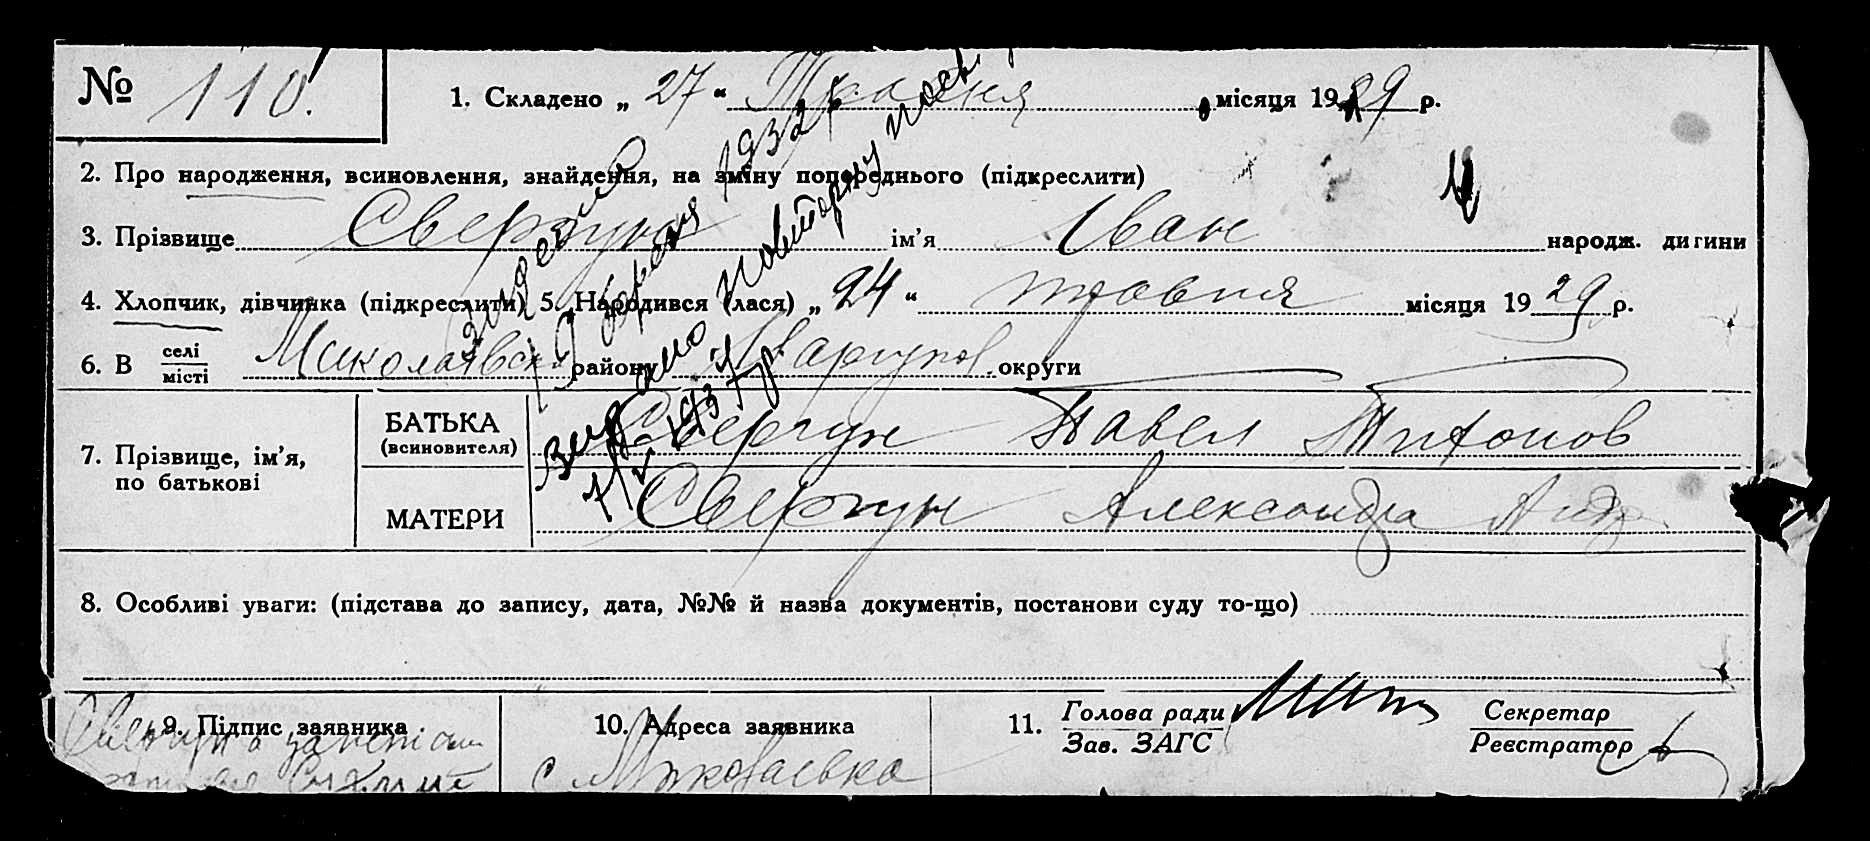 № 110.
1. Складено „ 27 “ Травня місяця 1929 р.
2. Про народження, всиновлення, знайдення, на зміну попереднього (підкреслити)
3. Прізвище Свергун ім’я Іван народж. дитини
4. Хлопчик, дівчинка (підкреслити) 5. Народився (лася) „ 24 “ травня місяця 1929 р.
6. В селі / місті Миколаївськ району округи
7. Прізвище, ім’я, по батькові
БАТЬКА (всиновителя) Свергун Павел Тихонов
МАТЕРИ Свергун Александра Анд
8. Особливі уваги: (підстава до запису, дата, №№ й назва документів, постанови суду то-що)
9. Підпис заявника
10. Адреса заявника
с Миколаевка
11. Голова ради / Зав. ЗАГС
Секретар / Реєстратор
19 березня 1932 р.
Видано повторну
1937 р.